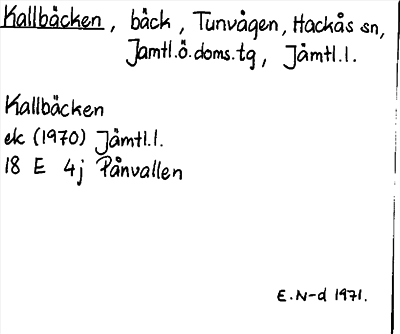 Kallbäcken, bäck, Tunvågen, Hackås sn,
Jämtl.ö.doms.tg, Jämtl.l.
Kallbäcken
ek (1970) Jämtl.l.
18 E 4j Pånvallen
E.N-d 1971.